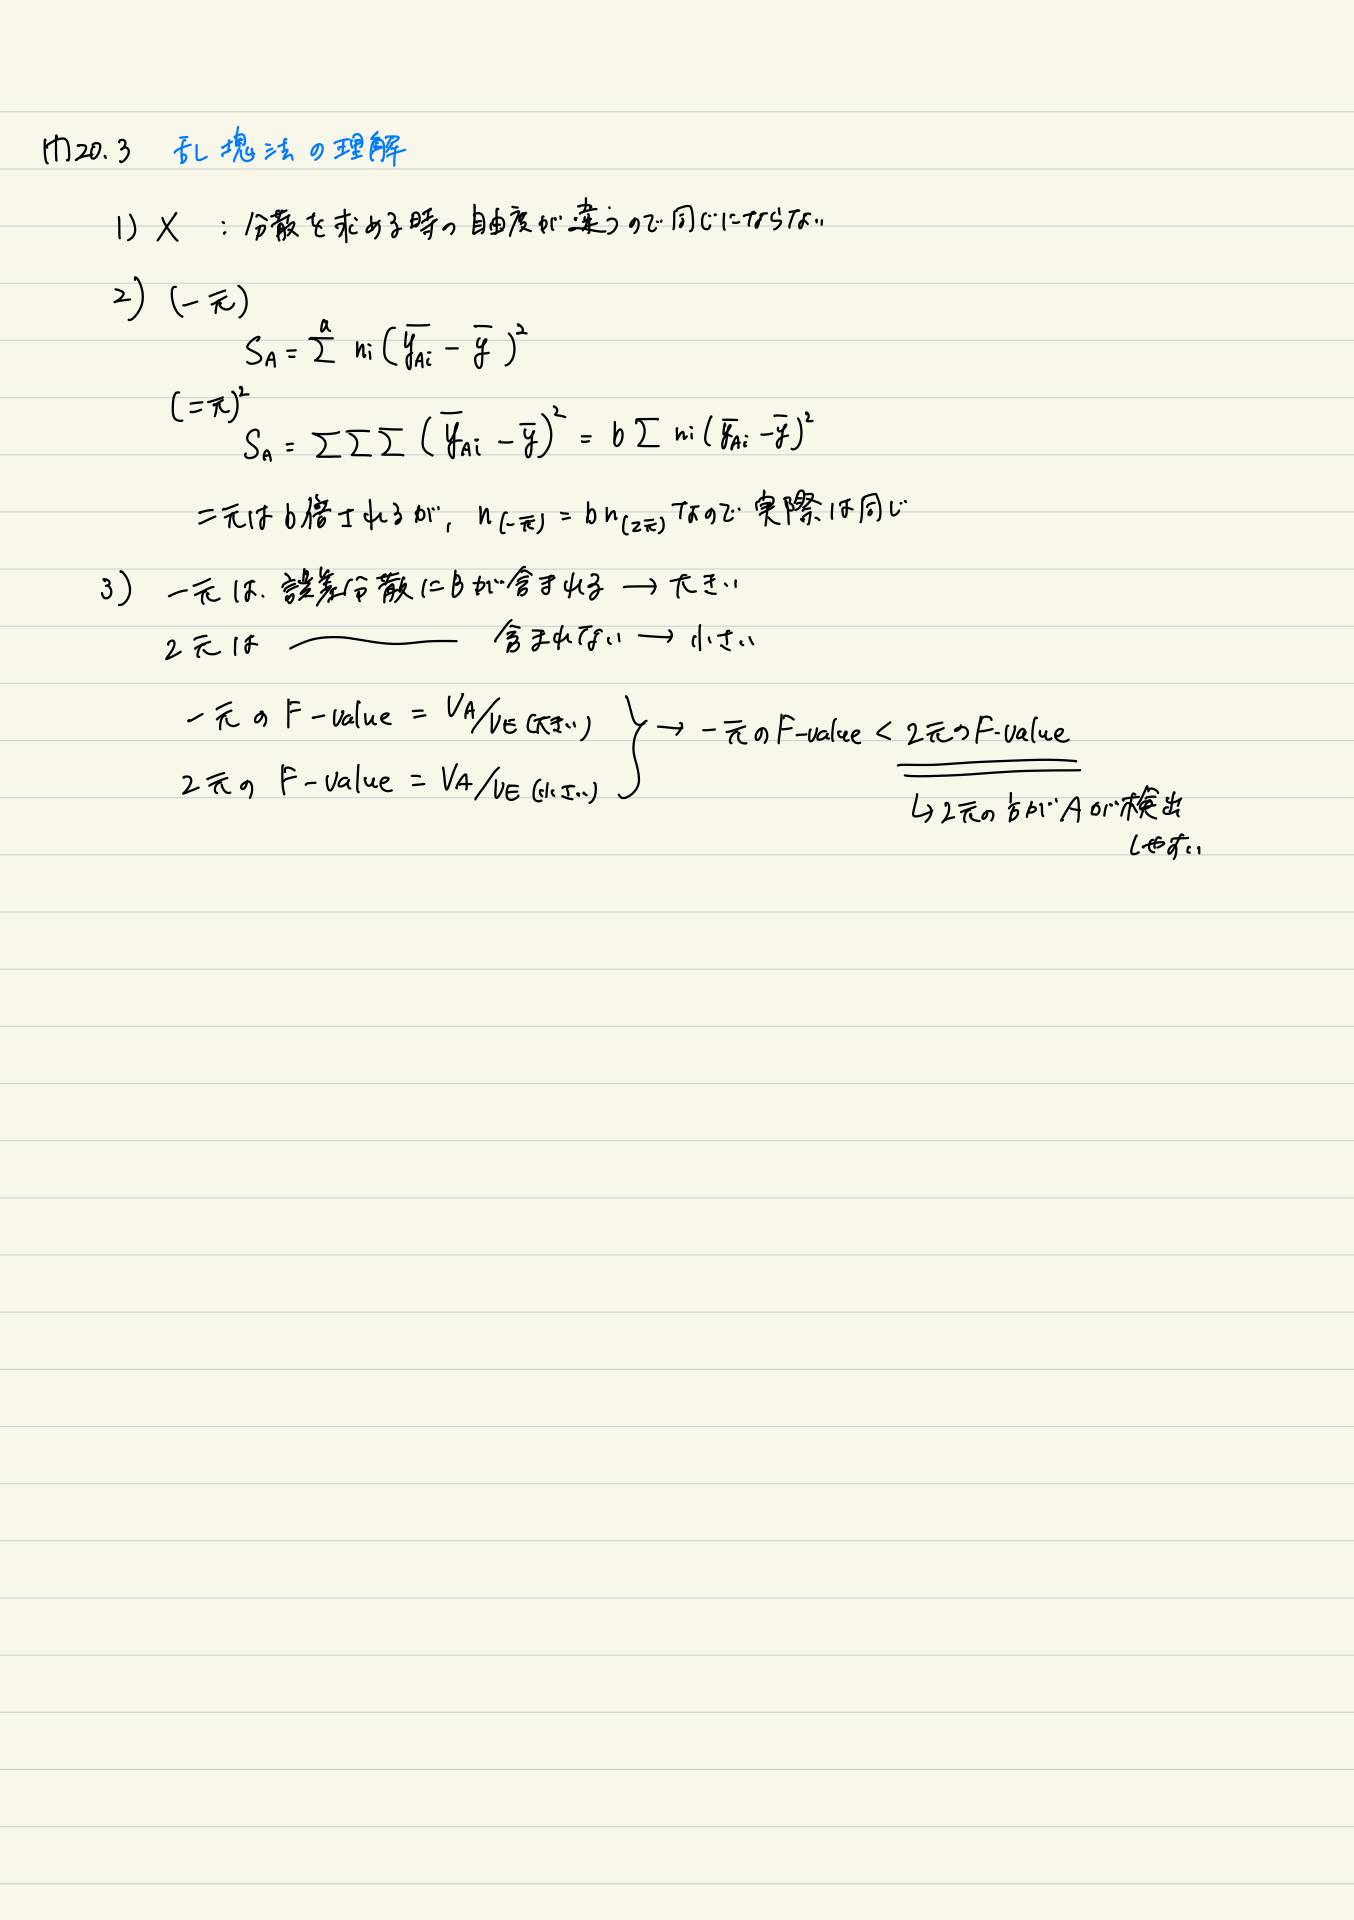 内20.3 乱塊法の理解
1) X : 分散を求める時の自由度が違うので同じにならない
2) (一元)
S_A = Σ^a ni(y̅_Ai − y̅)²
(二元)²
S_A = ΣΣΣ(y̅_Ai − y̅)² = bΣ ni(y̅_Ai − y̅)²
二元はb倍されるが, n(一元) = bn(2元)なので実際は同じ
3) 一元は、誤差分散にBが含まれる → 大きい
2元は 含まれない → 小さい
一元の F-value = VA/VE (大きい)
2元の F-value = VA/VE (小さい)
→ 一元のF-value < 2元のF-value
↳ 2元の方がAが検出
しやすい